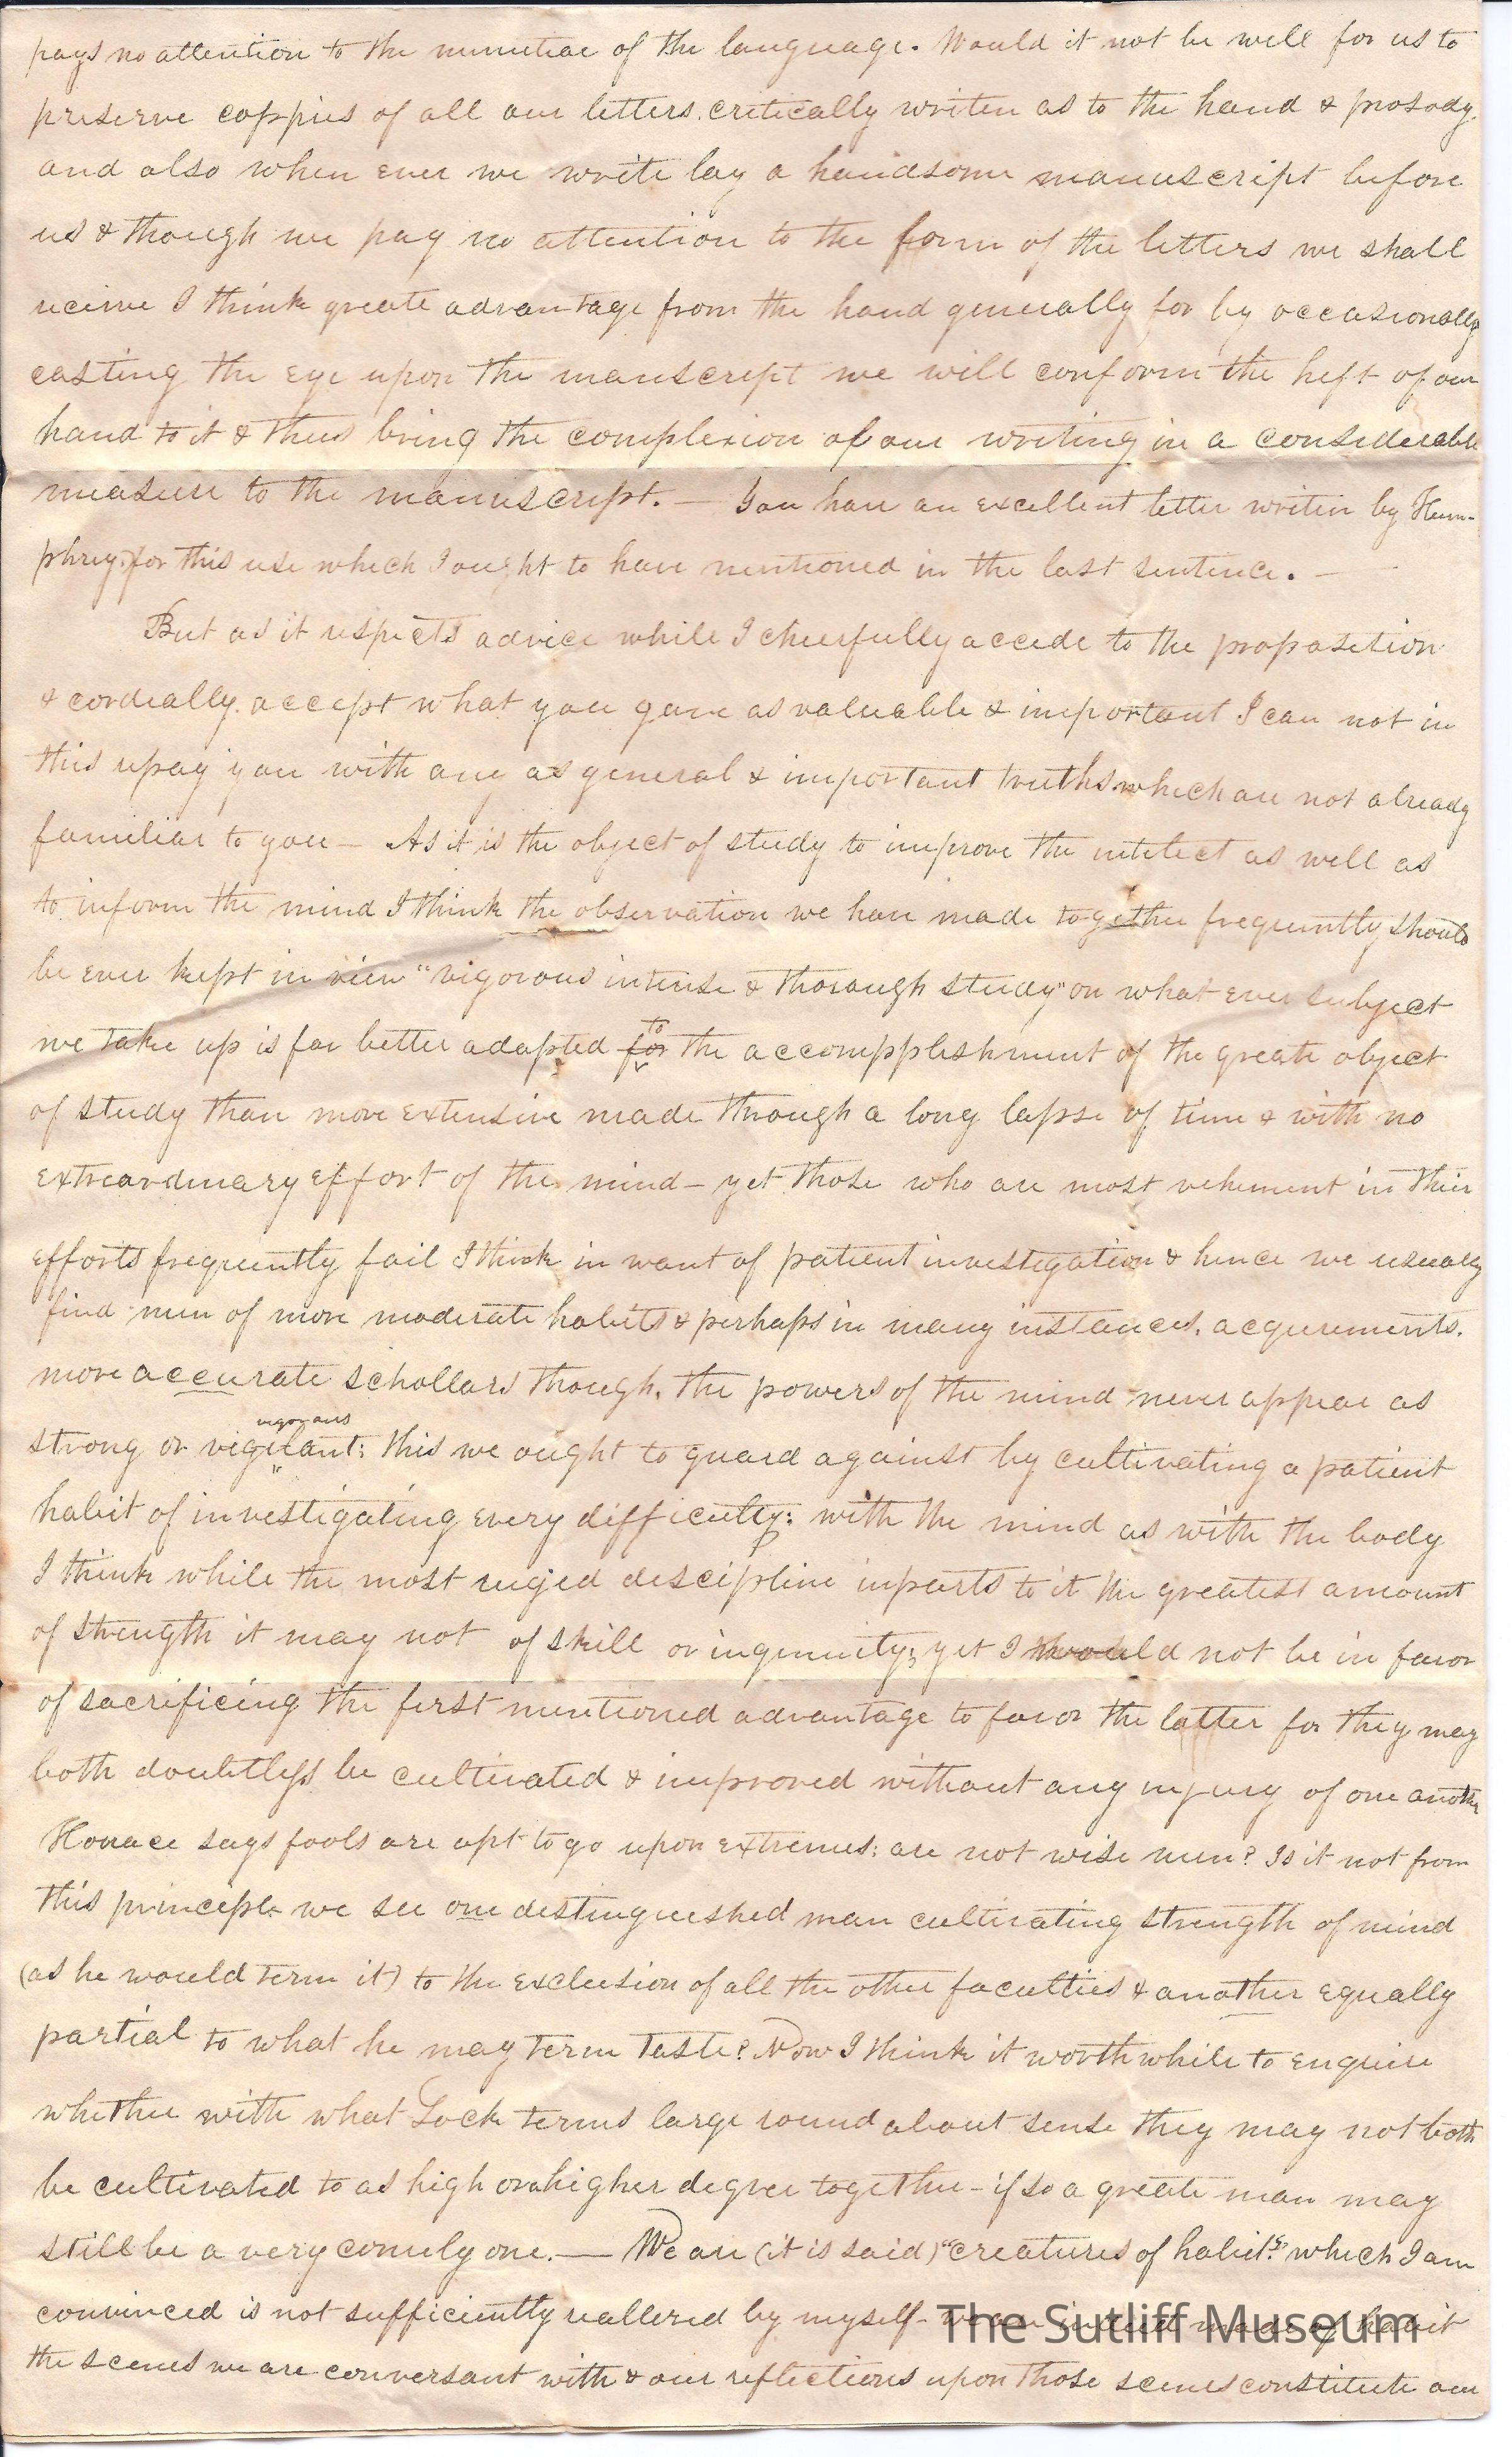 pays no attention to the minutiae of the language. Would it not be well for us to
preserve coppies of all our letters critically writen as to the hand & prosody.
and also when ever we write lay a handsome manuscript before
us & though we pay no attention to the form of the letters we shall
receive I think greate advantage from the hand generally for by occasionally
casting the eye upon the manuscript we will conform the heft of our
hand to it & thus bring the complexion of our writing in a considerable
measure to the manuscript. — You have an excellent letter writen by Hum-
phrey for this use which I ought to have mentioned in the last sentence. —
But as it respects advice while I cheerfully accede to the proposition
& cordially accept what you gave as valuable & important I can not in
this repay you with any as general & important truths which are not already
familiar to you — As it is the object of study to improve the intelect as well as
to inform the mind I think the observation we have made together frequently should
be ever kept in view "vigorous intense & thorough study" on what ever subject
we take up is far better adapted for to the accompplishment of the greate object
of study than more extensive made through a long lapse of time & with no
extreardinary effort of the mind — yet those who are most vehement in their
efforts frequently fail I think in want of patient investigation & hence we usually
find men of more moderate habits & perhaps in many instances, acqurements.
more accurate schollars though, the powers of the mind never appear as
strong or vigilant vigorous: this we ought to guard against by cultivating a patient
habit of investigating every difficulty: with the mind as with the body
I think while the most ruged descipline inparts to it the greatest amount
of strength it may not of skill or ingenuity; yet I would not be in favor
of sacrificing the first mentioned advantage to favor the latter for they may
both doubtless be cultivated & improved without any injury of one another
Horace says fools are apt to go upon extremes: are not wise men? Is it not from
this principle we see one destinguished man cultivating strength of mind
(as he would term it) to the exclusion of all the other faculties & another equally
partial to what he may term taste? Now I think it worth while to enquire
whether with what Lock terms large round about sense they may not both
be cultivated to as high or a higher degree together — if so a greate man may
still be a very comely one. — We are (it is said) "creatures of habits" which I am
convinced is not sufficiently reallered by myself — we are indeed made of habit
The Sutliff Museum
the scenes we are conversant with & our reflections upon those scenes constitute our